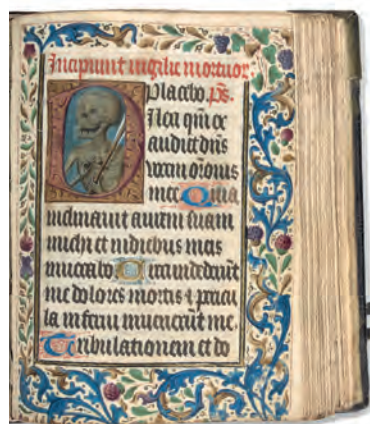 Incipiunt vigilie mortuor.
Placebo. ps.
Dilexi qm̄ ex
audiet dn̄s
vocem or̄onis
mee Quia
inclinauit aurem suam
michi et in diebus meis
inuocabo Circumdederūt
me dolores mortis et pericu
la inferni inuenerūt me.
Tribulationem et do